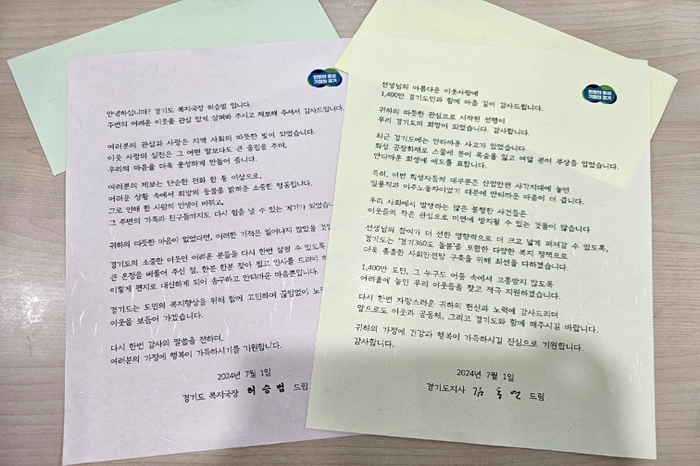 변화의 중심
기회의 경기
안녕하십니까? 경기도 복지국장 허승범 입니다.
주변의 어려운 이웃을 관심 있게 살펴봐 주시고 제보해 주셔서 감사드립니다.
여러분의 관심과 사랑은 지역 사회의 따뜻한 빛이 되었습니다.
이웃 사랑의 실천은 그 어떤 말보다도 큰 울림을 주며,
우리의 마음을 더욱 풍성하게 만들어 줍니다.
여러분의 제보는 단순한 전화 한 통 이상으로,
어려운 상황 속에서 희망의 등불을 밝혀준 소중한 행동입니다.
그로 인해 한 사람의 인생이 바뀌고,
그 주변의 가족과 친구들까지도 다시 힘을 낼 수 있는 계기가 되었습니
귀하의 따뜻한 마음이 없었다면, 이러한 기적은 일어나지 않았을 것
경기도의 소중한 이웃인 어려운 분들을 다시 한번 살필 수 있도록
큰 온정을 베풀어 주신 점, 한분 한분 찾아 뵙고 인사를 드려야
이렇게 편지로 대신하게 되어 송구하고 안타까운 마음뿐입니다.
경기도는 도민의 복지향상을 위해 함께 고민하며 끊임없이 노
이웃을 보듬어 가겠습니다.
다시 한번 감사의 말씀을 전하며,
여러분의 가정에 행복이 가득하시기를 기원합니다.
2024년 7월 1일
경기도 복지국장 허승범 드림
변화의 중심
기회의 경기
선생님의 아름다운 이웃사랑에
1,400만 경기도민과 함께 마음 깊이 감사드립니다.
귀하의 따뜻한 관심으로 시작된 선행이
우리 경기도의 희망이 되었습니다. 감사합니다.
최근 경기도에는 안타까운 사고가 있었습니다
화성 공장화재로 스물세 분이 목숨을 잃고 여덟 분이 부상을 입었습니다.
안타까운 희생에 애도를 표합니다.
특히, 이번 희생자들의 대부분은 산업안전 사각지대에 놓인
일용직과 이주노동자이었기 때문에 안타까운 마음이 더 큽니다.
우리 사회에서 발생하는 많은 불행한 사건들은
이웃들의 작은 관심으로 미연에 방지될 수 있는 것들이 많습니다
선생님의 참여가 더 선한 영향력으로 더 크고 넓게 퍼져갈 수 있도록,
경기도는 '경기360도 돌봄'을 포함한 다양한 복지 정책으로
더욱 촘촘한 사회안전망 구축을 위해 최선을 다하겠습니다.
1,400만 도민, 그 누구도 어둠 속에서 고통받지 않도록
어려움에 놓인 우리 이웃들을 찾고 적극 지원하겠습니다.
다시 한번 자랑스러운 귀하의 헌신과 노력에 감사드리며
앞으로도 이웃과 공동체, 그리고 경기도와 함께 해주시길 바랍니다.
귀하의 가정에 건강과 행복이 가득하시길 진심으로 기원합니다.
감사합니다.
2024년 7월 1일
경기도지사 김동연 드림